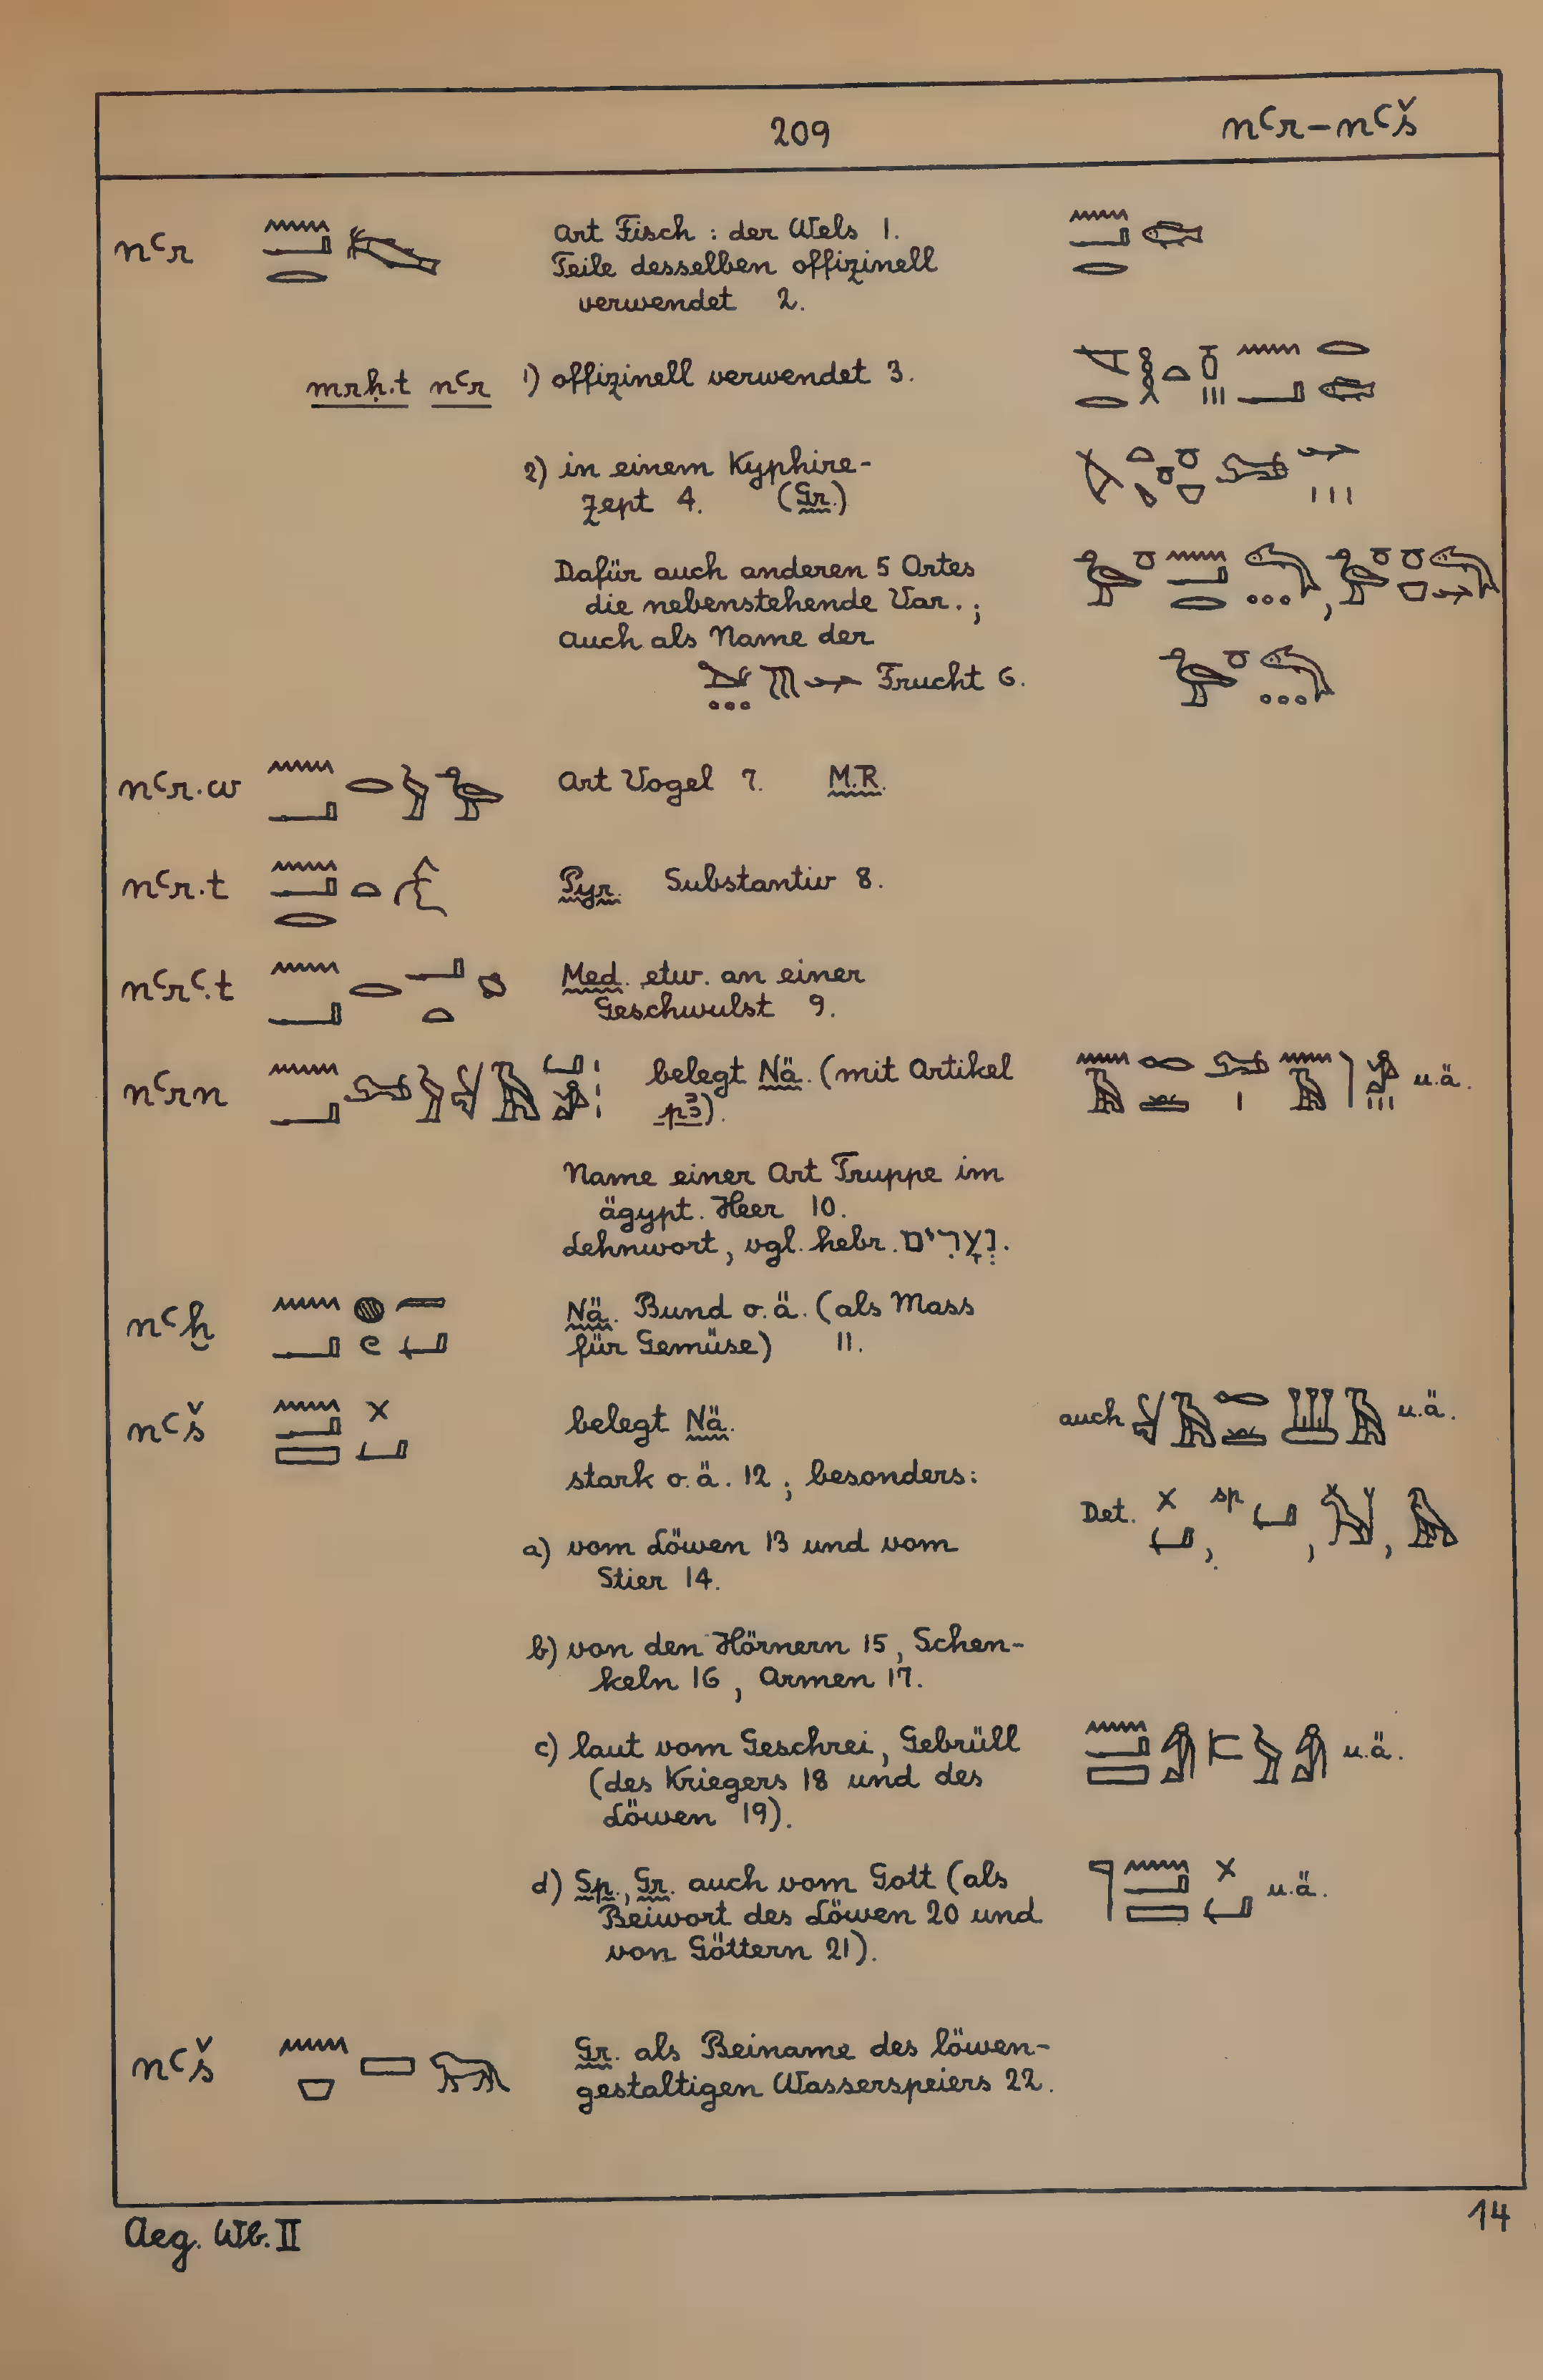 209 nꜥr – nꜥš
nꜥr 𓈖𓂝𓂋 Art Fisch : der Wels 1. 𓈖𓂝𓂋
Teile desselben offizinell
verwendet 2.
mrḥ.t nꜥr 1) offizinell verwendet 3.
2) in einem Kyphire-
zept 4. (Gr.)
Dafür auch anderen 5 Ortes
die nebenstehende Var. ;
auch als Name der
Frucht 6.
nꜥr.w 𓈖𓂝𓂋𓅱𓅭 Art Vogel 7. M.R.
nꜥr.t 𓈖𓂝𓂋𓏏 Pyr. Substantiv 8.
nꜥrꜥ.t 𓈖𓂝𓂋𓂝𓏏 Med. etw. an einer
Geschwulst 9.
nꜥrn belegt Nä. (mit Artikel u.ä.
pꜣ).
Name einer Art Truppe im
ägypt. Heer 10.
Lehnwort, vgl. hebr. נְעָרִים.
nꜥḫ Nä. Bund o.ä. (als Mass
für Gemüse) 11.
nꜥš belegt Nä. auch u.ä.
stark o.ä. 12 ; besonders:
Det. 𓏴 sp , , ,
a) vom Löwen 13 und vom
Stier 14.
b) von den Hörnern 15, Schen-
keln 16, Armen 17.
c) laut vom Geschrei, Gebrüll u.ä.
(des Kriegers 18 und des
Löwen 19).
d) Sp., Gr. auch vom Gott (als 𓊹𓈖𓂝𓈙𓏴 u.ä.
Beiwort des Löwen 20 und
von Göttern 21).
nꜥš Gr. als Beiname des löwen-
gestaltigen Wasserspeiers 22.
Aeg. Wb. II 14